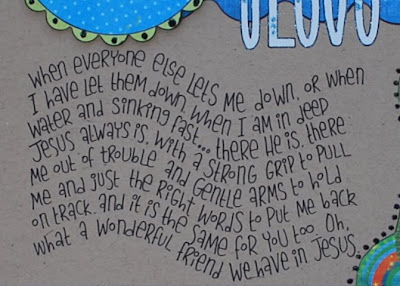 JESUS
When everyone else lets me down, or when
I have let them down, when I am in deep
water and sinking fast... there He is, there
Jesus always is, with a strong grip to pull
me out of trouble and gentle arms to hold
me and just the right words to put me back
on track. and it is the same for you too. Oh,
what a wonderful friend we have in Jesus.